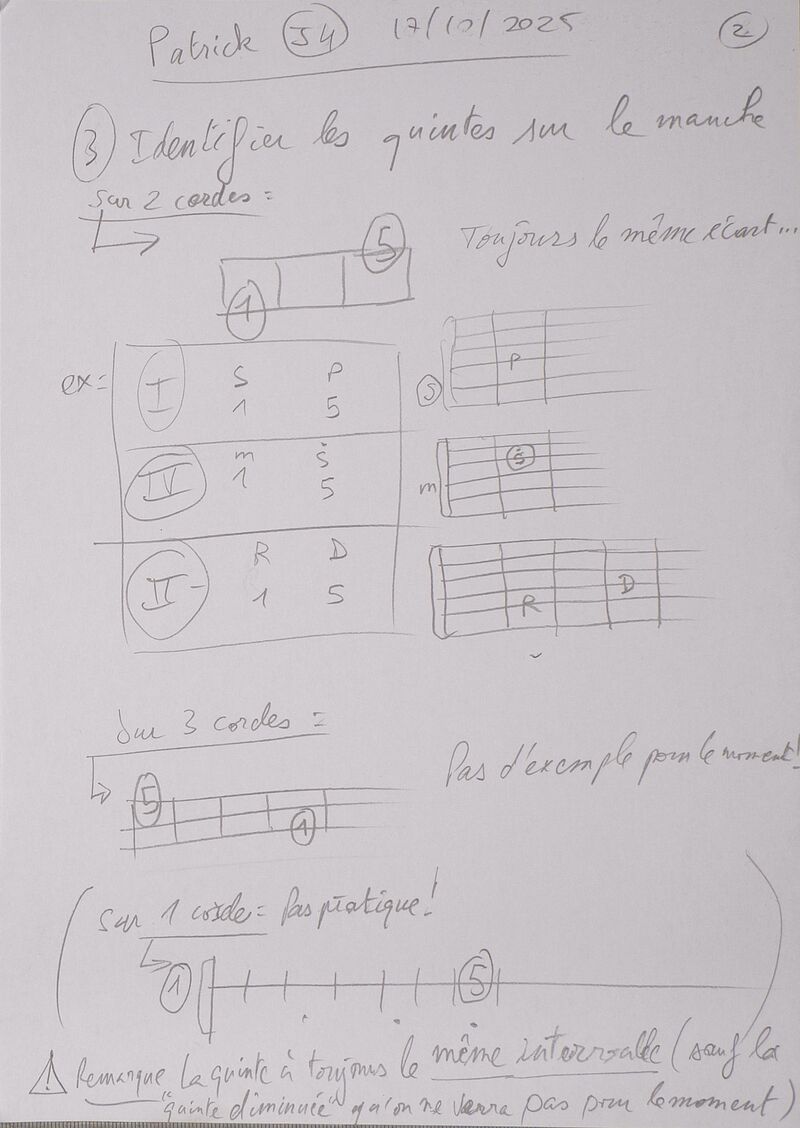 Patrick J4 17/10/2025 2
3 Identifier les quintes sur le manche
sur 2 cordes =
Toujours le même écart...
5
1
ex= I S P
1 5
S P
IV m Ṡ
1 5
m Ṡ
II- R D
1 5
R D
Sur 3 cordes =
Pas d'exemple pour le moment!
5
1
(sur 1 corde = Pas pratique!
1 5 )
⚠ Remarque La quinte à toujours le même intervalle (sauf la
"quinte diminuée" qu'on ne verra pas pour le moment)